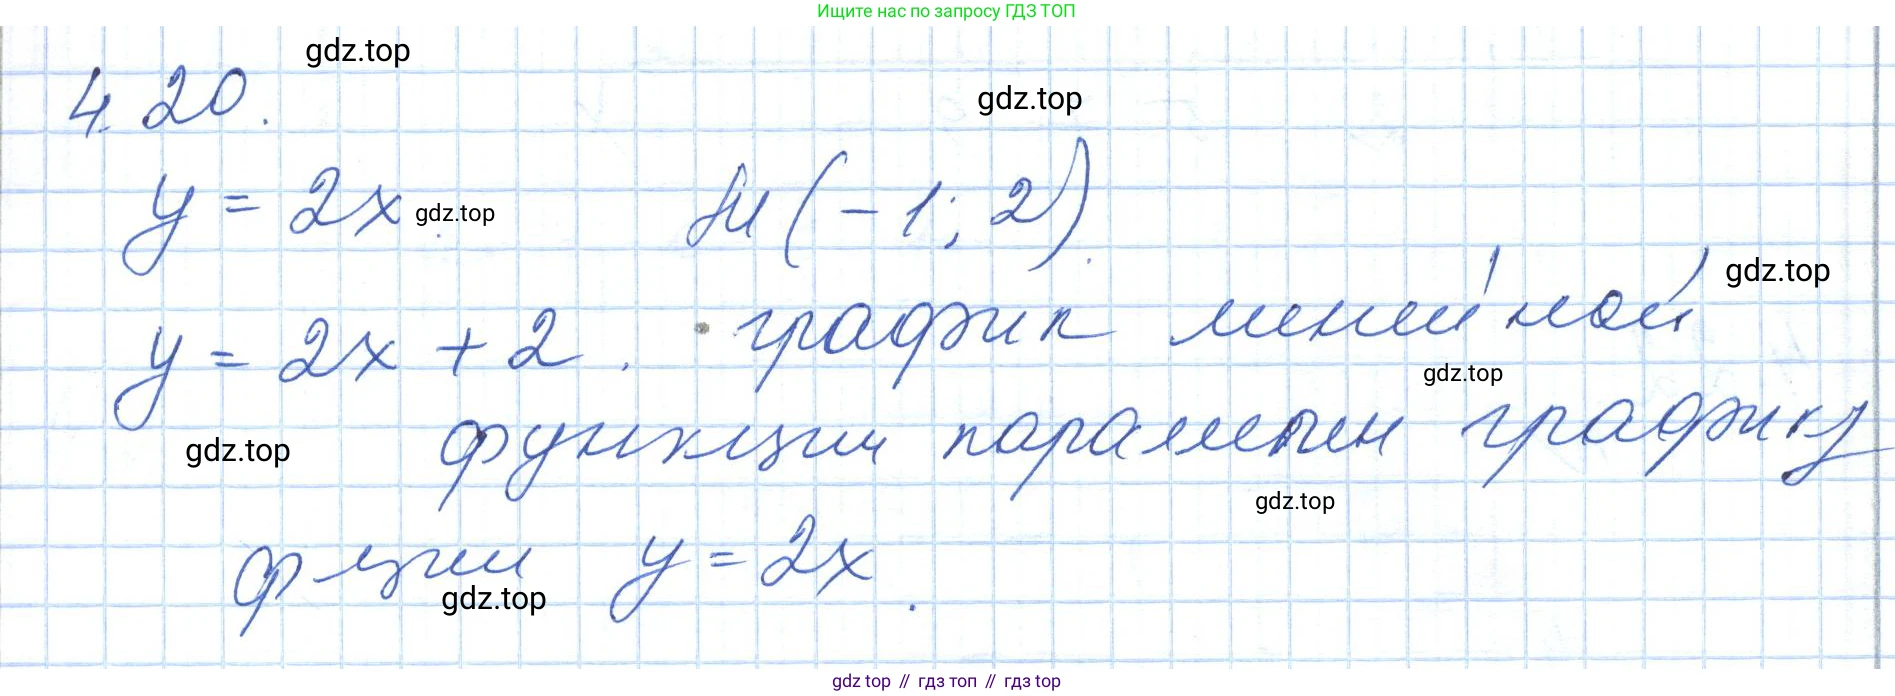 Ищите нас по запросу ГДЗ ТОП
gdz.top
4.20.
gdz.top
y = 2x. gdz.top M(-1; 2).
gdz.top
y = 2x + 2. график линейной
gdz.top
gdz.top функции параллелен графику
gdz.top
ф-ции y = 2x.
gdz.top
gdz top // гдз топ // гдз top